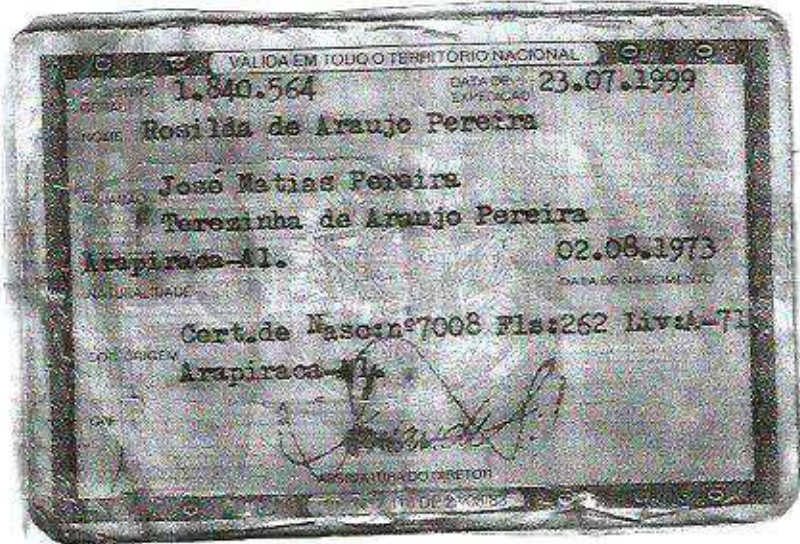 VALIDA EM TODO O TERRITÓRIO NACIONAL
GERAL 1.840.564 DATA DE EXPEDIÇÃO 23.07.1999
NOME Rosilda de Araujo Pereira
FILIAÇÃO José Matias Pereira
Terezinha de Araujo Pereira
Arapiraca-Al. 02.08.1973
NATURALIDADE DATA DE NASCIMENTO
Cert.de Nasc:nº7008 Fls:262 Liv:A-71
DOC ORIGEM
Arapiraca-Al.
CPF
ASSINATURA DO DIRETOR